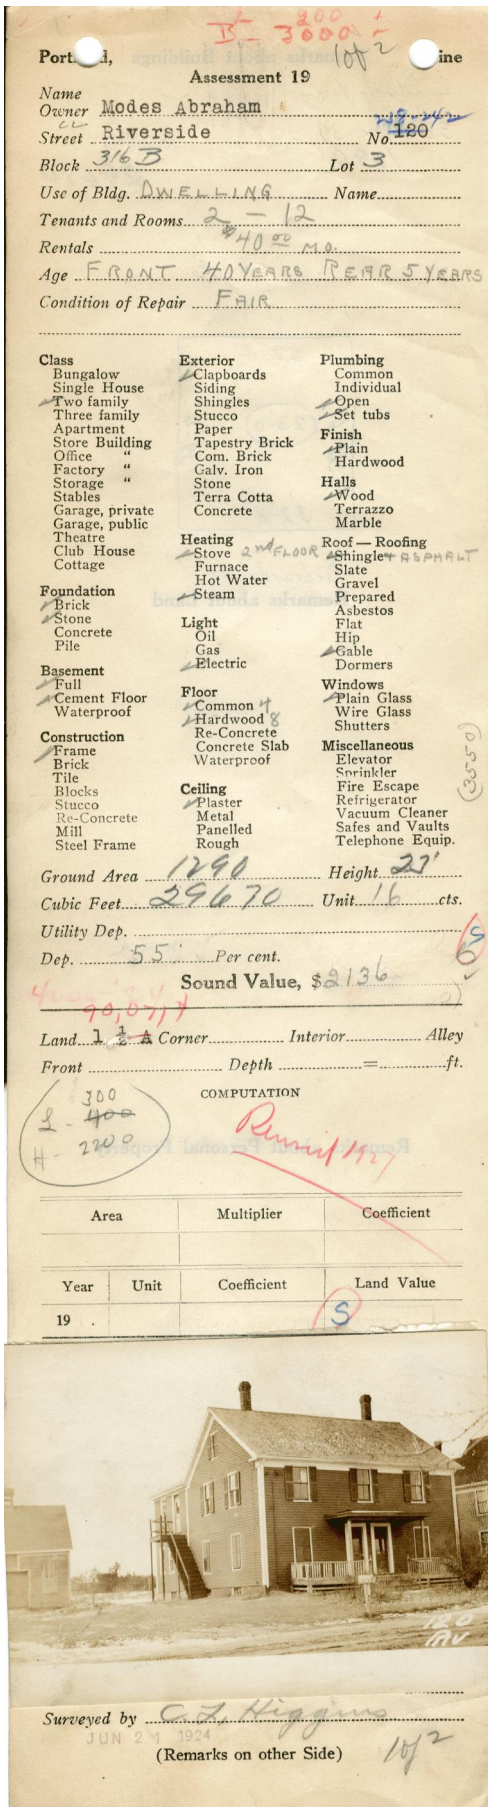 L 200 +
B - 3000 -
1 of 2
Portland, ine
Assessment 19
Name
Owner Modes Abraham
238-242
Street Riverside No. 120
Block 316 B Lot 3
Use of Bldg. DWELLING Name
Tenants and Rooms 2 - 12
Rentals $40 00 MO.
Age FRONT 40 YEARS REAR 5 YEARS
Condition of Repair FAIR
Class
Bungalow
Single House
Two family
Three family
Apartment
Store Building
Office "
Factory "
Storage "
Stables
Garage, private
Garage, public
Theatre
Club House
Cottage
Foundation
Brick
Stone
Concrete
Pile
Basement
Full
Cement Floor
Waterproof
Construction
Frame
Brick
Tile
Blocks
Stucco
Re-Concrete
Mill
Steel Frame
Exterior
Clapboards
Siding
Shingles
Stucco
Paper
Tapestry Brick
Com. Brick
Galv. Iron
Stone
Terra Cotta
Concrete
Heating
Stove 2nd FLOOR
Furnace
Hot Water
Steam
Light
Oil
Gas
Electric
Floor
Common 4
Hardwood 8
Re-Concrete
Concrete Slab
Waterproof
Ceiling
Plaster
Metal
Panelled
Rough
Plumbing
Common
Individual
Open
Set tubs
Finish
Plain
Hardwood
Halls
Wood
Terrazzo
Marble
Roof — Roofing
Shingle + ASPHALT
Slate
Gravel
Prepared
Asbestos
Flat
Hip
Gable
Dormers
Windows
Plain Glass
Wire Glass
Shutters
Miscellaneous
Elevator
Sprinkler
Fire Escape
Refrigerator
Vacuum Cleaner
Safes and Vaults
Telephone Equip.
(3550)
Ground Area 1290 Height 23'
Cubic Feet 29670 Unit 16 cts.
Utility Dep.
Dep. 55 Per cent.
Sound Value, $2136
Land 1 1/2 A Corner Interior Alley
Front Depth = ft.
COMPUTATION
300
L - 400
H - 2200
1927
Area Multiplier Coefficient
Year Unit Coefficient Land Value
19 .
S
120
RIV
Surveyed by C. L. Higgins
JUN 21 1924
(Remarks on other Side)
1 of 2